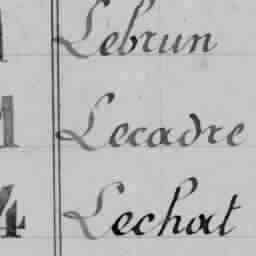 1 Lebrun
1 Lecadre
4 Lechat